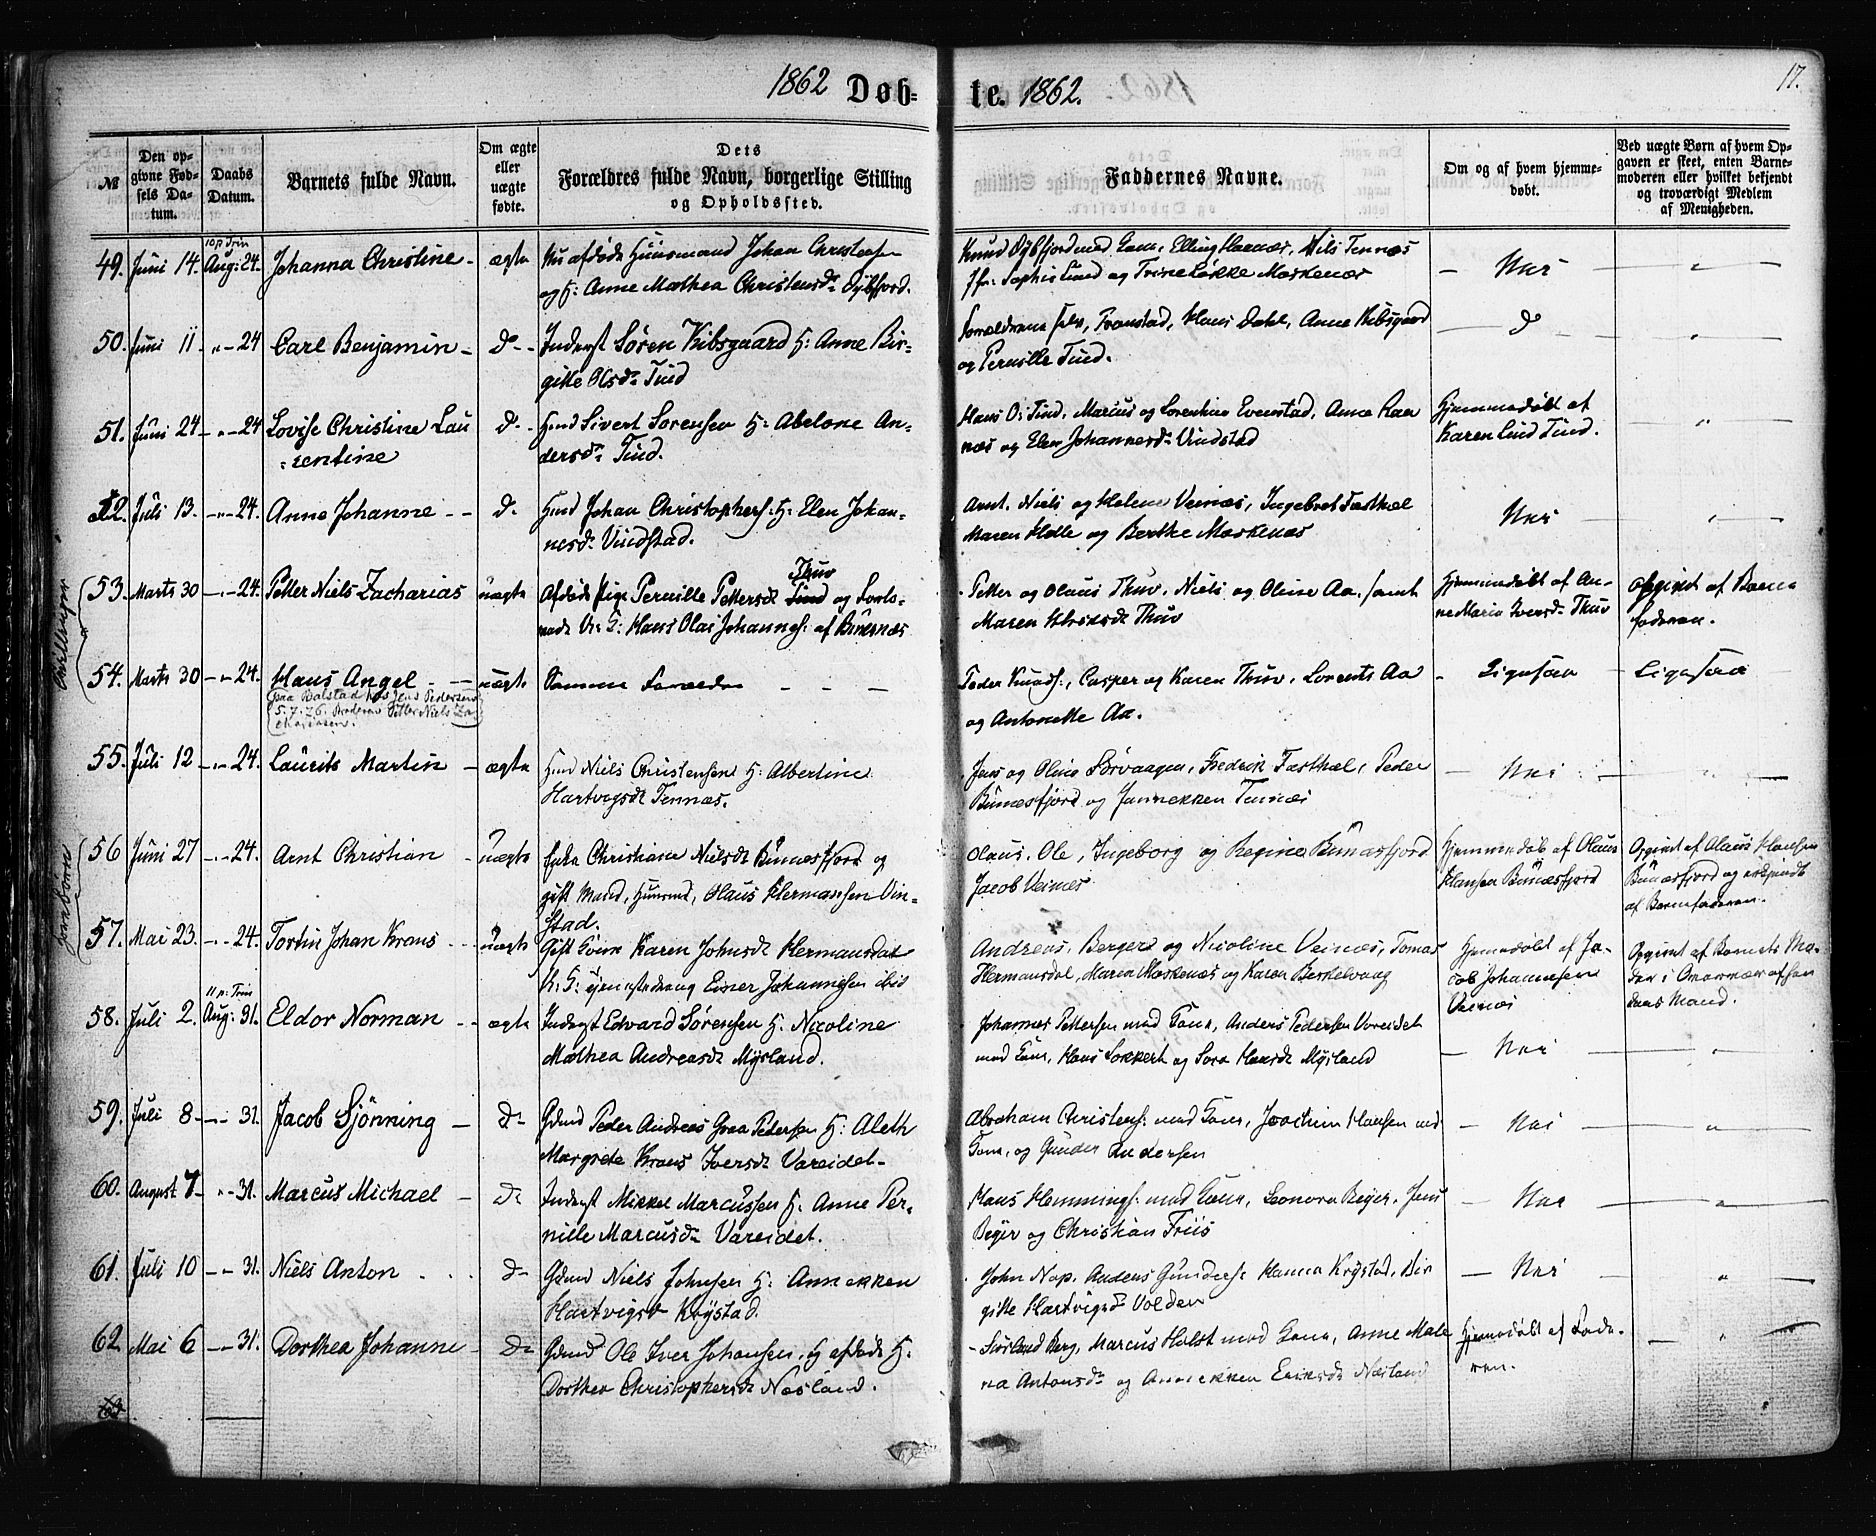 1862 Døb-
te. 1862.
17.
№
Den op-
givne Fød-
sels Da-
tum.
Daabs
Datum.
Barnets fulde Navn.
Om ægte
eller
uægte
fødte.
Dets
Forældres fulde Navn, borgerlige Stilling
og Opholdssted.
Faddernes Navne.
Om og af hvem hjemme-
døbt.
Ved uægte Børn af hvem Op-
gaven er skeet, enten Barne-
moderen eller hvilket bekjendt
og troværdigt Medlem
af Menigheden.
49. Juni 14. Aug: 24. Johanna Christine - ægte afdøde Huusmand Johan
og H: Anne Mathea Christensd: Dybfjord.
Knud Dybfjord med Kone, Elling Hannæs, Nils Tennæs
Jfr: Sophie Lund og Trine Løkke Moskenæs
Nei
50. Juni 11. - " - 24 Carl Benjamin - do - Inderst Søren Kibsgaard H: Anne Bir-
gitte Olsdr Tind
Forældrene selv, Hans Dahl, Anne Kibsgaard
og Pernille Tind.
do
51. Juni 24 - " - 24 Lovise Christine Lau
=rentine
do - Hmd Sivert Sørensen H: Abelone An-
dersdr Tind.
Hans O: Tind, Marcus og Lorentine Evenstad, Anne
næs og Elen Johannesdr Vindstad
Hjemmedøbt af
Karen Lind Tind.
52. Juli 13. - " - 24. Anne Johanne - - do Hmd Johan Christophers: H: Elen Johan-
nesdr Vindstad.
Arnt, Niels og Helene Veinæs, Ingebret Fæsthæl
Maren Holle og Berthe Moskenæs
Nei
Tvillinger
53. Marts 30 - " - 24. Petter Niels Zacharias uægte Afdøde Pige Pernille Pettersdr Tind Thuv og Forlo-
vede U: G: Hans Olai Johannes: af Bunesnæs
Petter og Olaus Thuv, Niels og Oline Aa, samt
Maren Thuv
Hjemmedøbt af An-
ne Maria Iversdr Thuv
Opgivet af Barne
faderen.
54. Marts 30 - " - 24. Hans Angel - uægte Samme Forældre - - -
paa Balstad hos Jens Pedersen
5.7.26. Broderen Petter Niels Za
chariasen.
Peder Knuds:, Casper og Karen Thuv, Lorents Aa
og Antonette Aa.
Ligesaa
Ligesaa
55. Juli 12 - " - 24. Laurits Martin - ægte Hmd Niels Christensen H: Albertine
Hartvigsdr Tennæs.
Jens og Oline Sørvaagen, Fredrik Fæsthæl, Peder
Bunæsfjord og Jannekken Tennæs
Nei
56 Juni 27 - " - 24. Arnt Christian - uægte Enke Christiane Nielsdr Bunæsfjord og
gift Mand, Huusmd, Olaus Hermansen Vin-
stad.
Olaus, Ole, Ingeborg og Regine Bunæsfjord
Jacob Veinæs
Hjemmedøb af Olaus
Hansen Bunæsfjord
Opgivet af Olaus Hansen
Bunæsfjord og
af Barnefaderen.
57. Mai 23. - " - 24. Tortin Johan Kraus - uægte Gift Karen Johnsdr Hermansdal
U: G: Einer Johannesen ibid
Andreas, Berger og Nicoline Veinæs, Tomas
Hermansdal, Maria Moskenæs og Karen Berkelvaag
Hjemedøbt af Ja-
cob Johannesen
Veinæs
Opgivet af Barnets Mo-
der i
Mand.
11 p: Trin
58. Juli 2. Aug: 31. Eldor Norman - - ægte Inderst Edvard Sørensen H: Nicoline
Mathea Andreasdr Mysland.
Johannes Pettersen med Kone, Anders Pedersen Voreidet
med Kone, Hans og Sara Hansdr Mysland
Nei
59. Juli 8 - " - 31. Jacob Sjønning - do Gdmd Peder Andreas Graa Pedersen H: Aleth
Margrete Kraus Iversdr Vareidet -
Abraham Christens: med Kone, Joachim Hansen med
Kone, og Gunder Andersen
Nei
60. August 7 - " - 31. Marcus Michael - do Inderst Mikkel Marcussen H: Anne Per-
nille Marcusdr Vareidet.
Hans Hemmings: med Kone, Leonora Beyer, Jens
Beyer og Christian Friis
Nei
61. Juli 10 - - 31. Niels Anton - do Gdmd Niels Johnsen H: Annekken
Hartvigsdr Krystad
John Nap, Anders Gunders: Hanna Krystad, Bir
gitte Hartvigsdr Volden
Nei
62. Mai 6 - - 31. Dorthea Johanne - do Gdmd Ole Iver Johansen, og afdøde H:
Dorthea Christophersdr Næsland.
Berg, Marcus Holst med Kone, Anne Male
na Antonsdr og Annekken Eriksdr Næsland
Hjemedøbt af Fade-
ren.
63